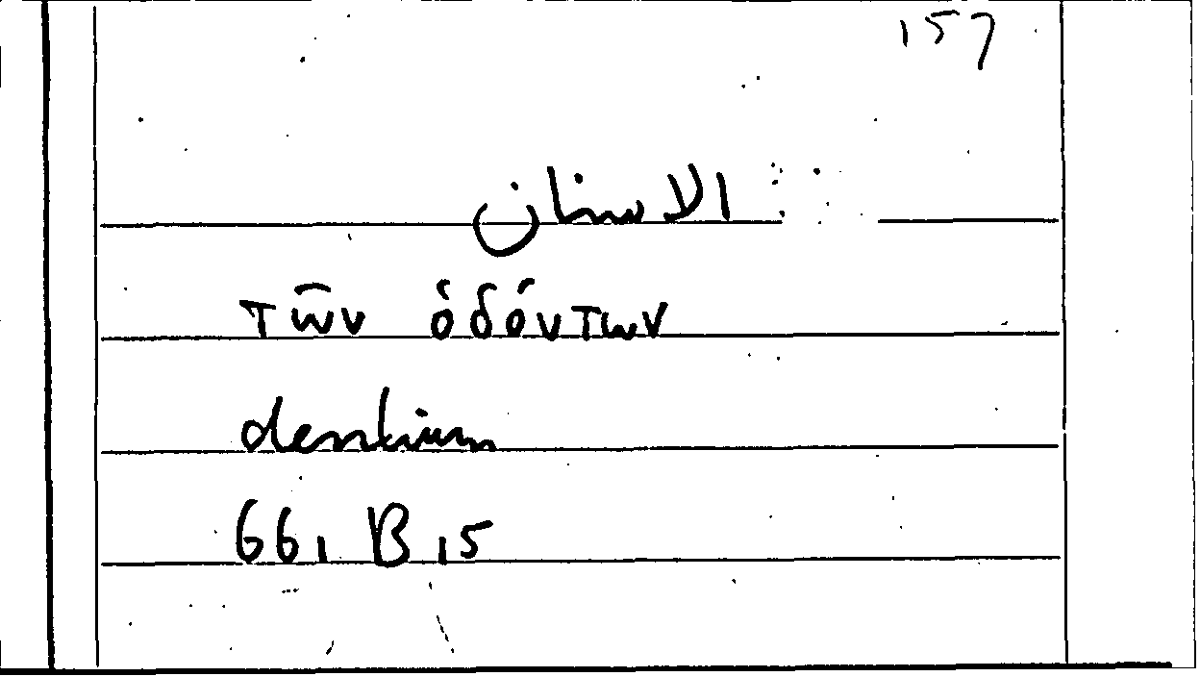 157
الاسنان
τῶν ὀδόντων
dentium
661 B 15